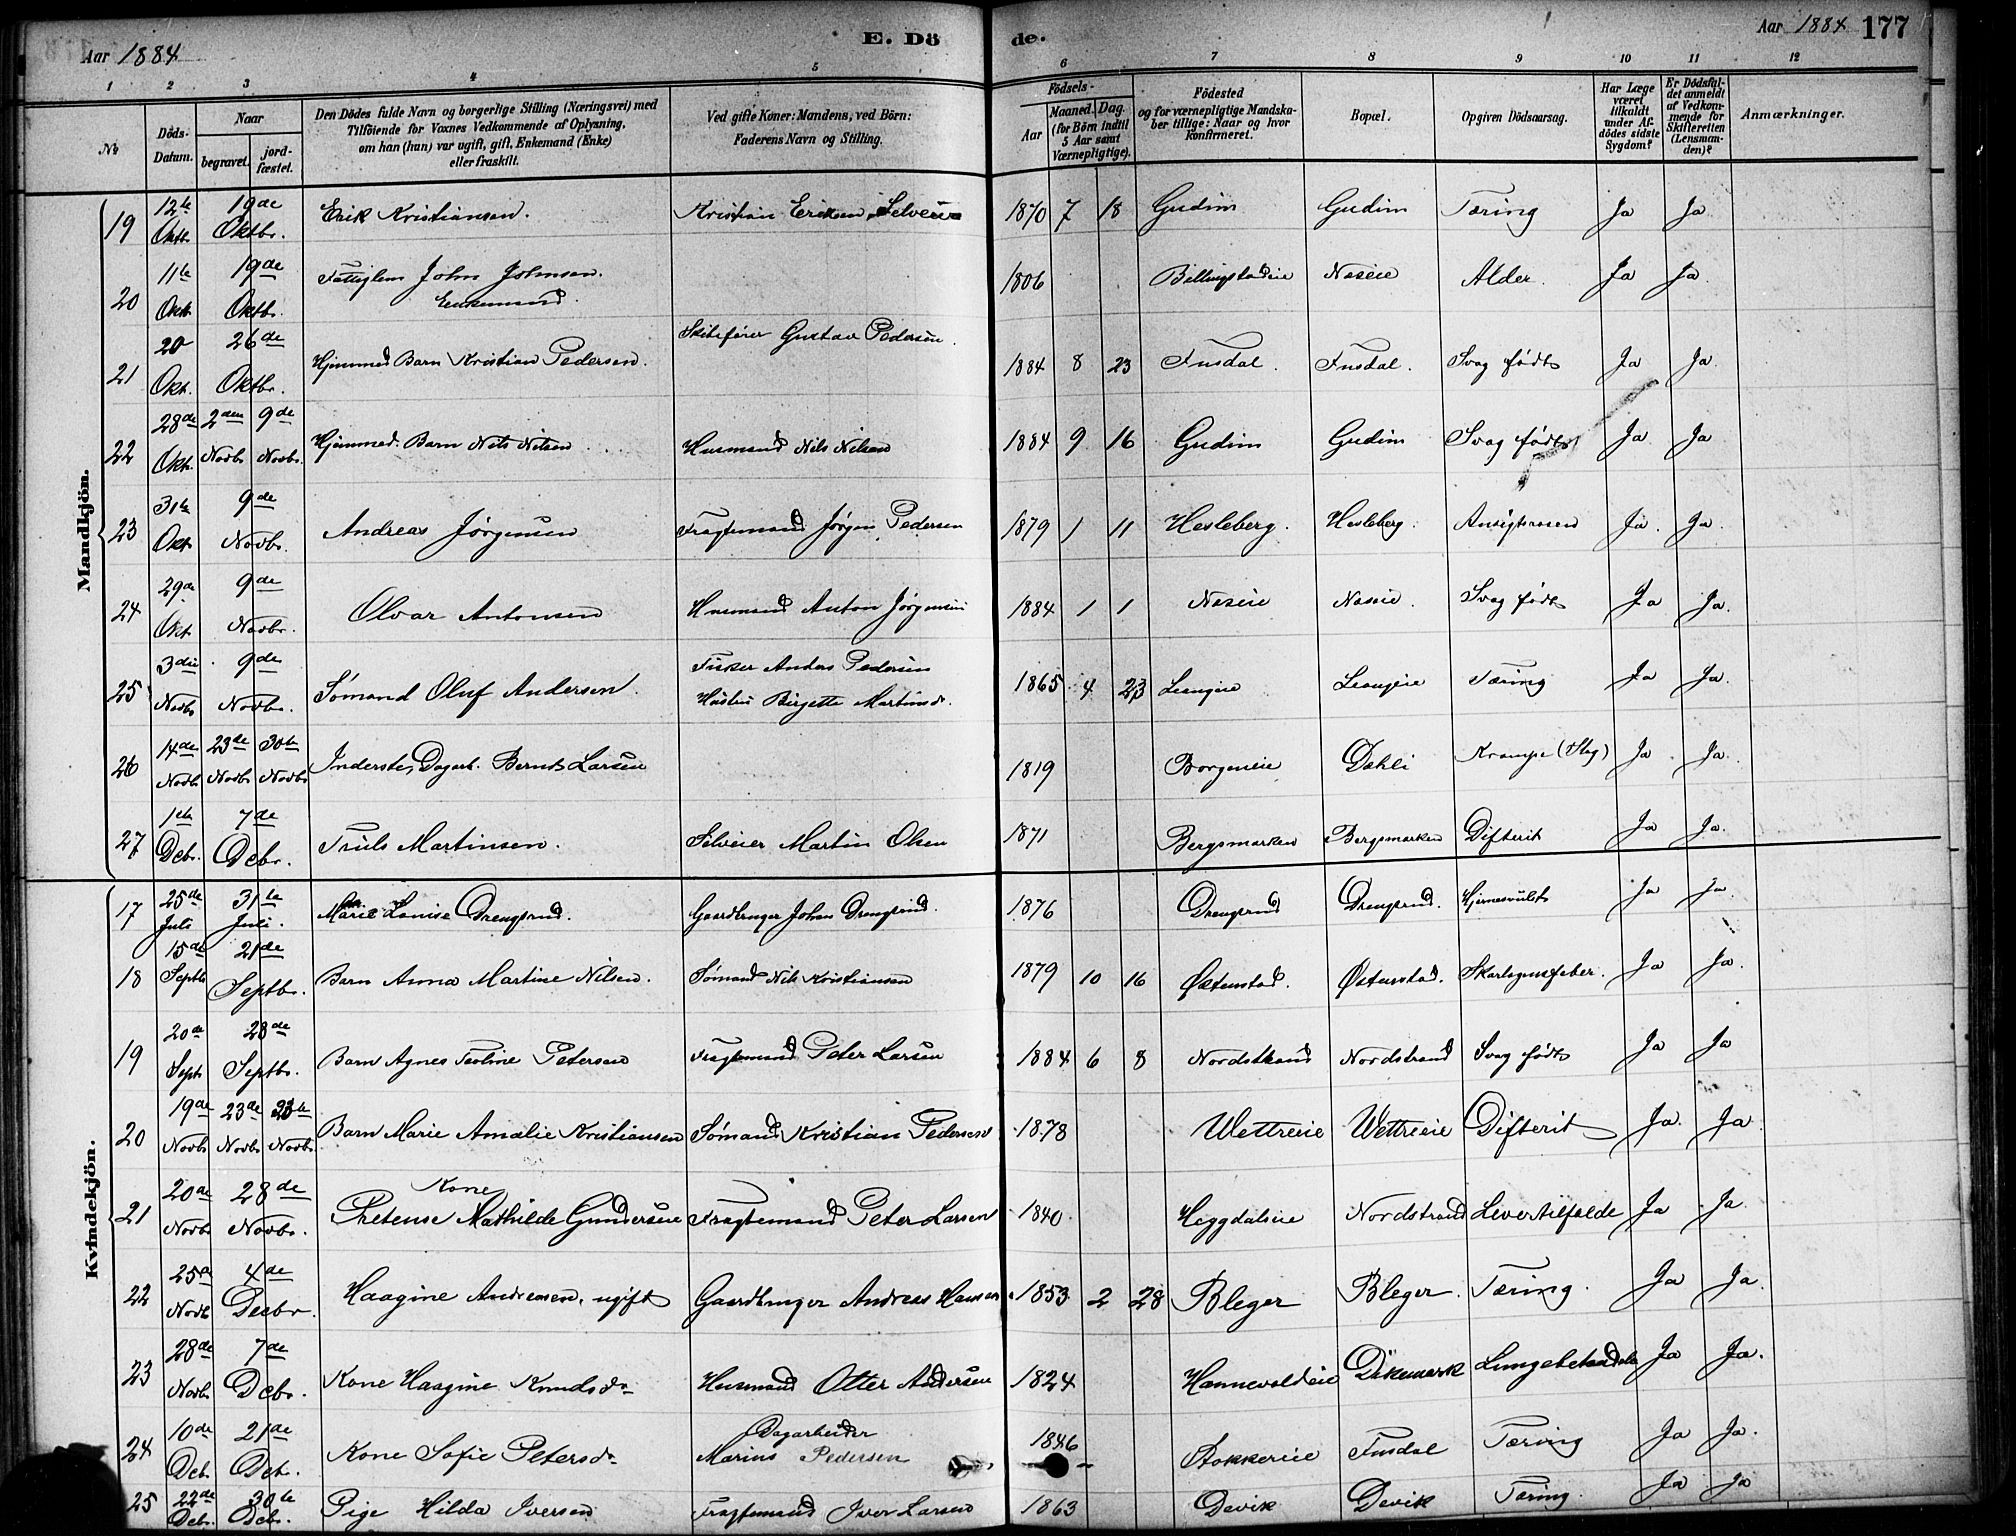 Aar 1884
E. Döde.
Aar 1884 177
1 2 3 4 5 6 7 8 9 10 11 12
№ Döds-Datum. Naar begravet. jordfæstet.
Den Dödes fulde Navn og borgerlige Stilling (Næringsvei) med Tilföiende for Voxnes Vedkommende af Oplysning, om han (hun) var ugift, gift, Enkemand (Enke) eller fraskilt.
Ved gifte Koner: Mandens, ved Börn: Faderens Navn og Stilling.
Födsels- Aar Maaned. Dag. (for Börn indtil 5 Aar samt Værnepligtige).
Födested og for værnepligtige Mandskaber tillige: Naar og hvor konfirmeret.
Bopæl.
Opgiven Dödsaarsag.
Har Læge været tilkaldt under Afdödes sidste Sygdom?
Er Dödsfaldet anmeldt af Vedkommende for Skifteretten (Lensmanden)?
Anmærkninger.
Mandkjön.
19 12te Oktbr. 19de Oktbr. Erik Kristiansen. Kristian Eriksen, Selveier 1870 7 18 Gudim Gudim Tæring Ja Ja
20 11te Oktr. 19de Oktbr. Fattiglem John Johnsen. Enkemand. 1806 Billingstadeie Næseie Alder. Ja Ja.
21 20 Okt. 26de Oktbr. Hjemmed. Barn Kristian Pedersen. Skibsfører Gustav Pedersen. 1884 8 23 Fusdal. Fusdal. Svag født Ja Ja.
22 28de Okt. 2den Novbr. 9de Novbr. Hjemmed. Barn Nils Nilsen Husmand Nils Nilsen 1884 9 16 Gudim Gudim Svag født Ja Ja
23 31te Okt. 9de Novbr. Andreas Jørgensen Fragtemand Jørgen Pedersen 1879 1 11 Hesleberg. Hesleberg. Ansigtsrosen Ja. Ja.
24 29de Okt. 9de Novbr. Olvar Antonsen Husmand Anton Jørgensen 1884 1 1 Næseie Næseie. Svag født Ja Ja.
25 3die Novbr. 9de Novbr. Sømand Oluf Andersen. Fisker Anders Pedersen Hustru Birgette Martinsdr. 1865 4 23 Leangeie Leangeie Tæring Ja Ja.
26 14de Novbr. 23de Novbr. 30te Novbr. Inderste, Dagarb. Bernt Larsen 1819 Borgeneie Dæhli Krampe (Slag) Ja Ja.
27 1ste Debr. 7de Debr. Truls Martinsen. Selveier Martin Olsen 1871 Bergsmarken Bergsmarken Difterit Ja Ja.
Kvindekjön.
17 25de Juli 31te Juli. Marie Louise Drengsrud. Gaardbruger Johan Drengsrud. 1876 Drengsrud Drengsrud. Ja Ja.
18 15de Septb. 21de Septbr. Barn Anna Martine Nilsen. Sømand Nils Kristiansen 1879 10 16 Østenstad. Østenstad. Skarlagensfeber. Ja Ja.
19 20de Sept. 28de Septbr. Barn Agnes Teoline Petersen Fragtemand Peter Larsen 1884 6 8 Nordstrand Nordstrand Svag født Ja Ja
20 19de Novbr. 23de Novbr. Novbr. Barn Marie Amalie Kristiansen Sømand Kristian Pedersen 1878 Wettreeie Wettreeie Difterit Ja. Ja
21 20de Novbr. 28de Novbr. Kone Pretense Mathilde Gundersen Fragtemand Peter Larsen 1840 Heggdalseie Nordstrand Levertilfælde Ja Ja
22 25de Novb. 4de Decbr. Haagine Andresen, ugift Gaardbruger Andreas Hansen 1853 2 28 Bleger Bleger. Tæring. Ja Ja.
23 28de Novbr. 7de Debr. Kone Haagine Knudsdr. Husmand Otter Andersen 1824 Hannevoldeie Dikemark Lungebetændelse Ja Ja.
24 10de Deb. 21de Deb. Kone Sofie Petersdr. Dagarbeider Marius Pedersen 1846 Stokkereie Fusdal Tæring Ja Ja.
25 22de Debr. 30te Debr. Pige Hilda Iversen Fragtemand Iver Larsen 1863 Devik Devik Tæring. Ja Ja